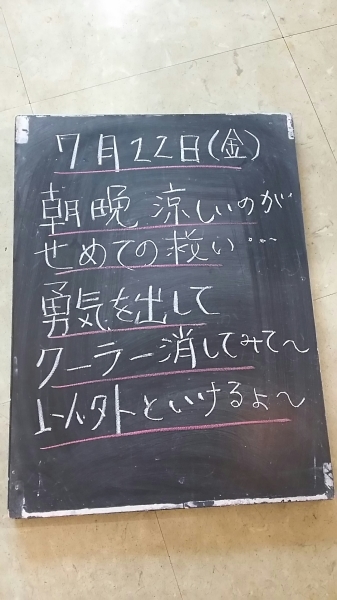 7月22日(金)
朝晩 涼しいのが
せめての救い…
勇気を出して
クーラー消してみて〜
以外といけるよ〜